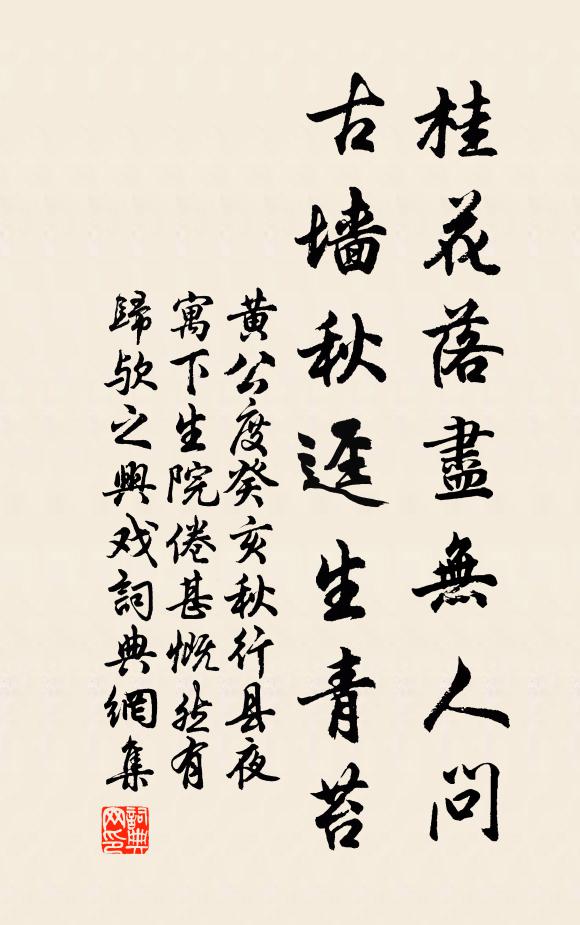 桂花落盡無人問
古墻秋逕生青苔
黄公度癸亥秋行县夜
寓下生院倦甚慨然有
歸歟之興戏詞典網集
詞典網印